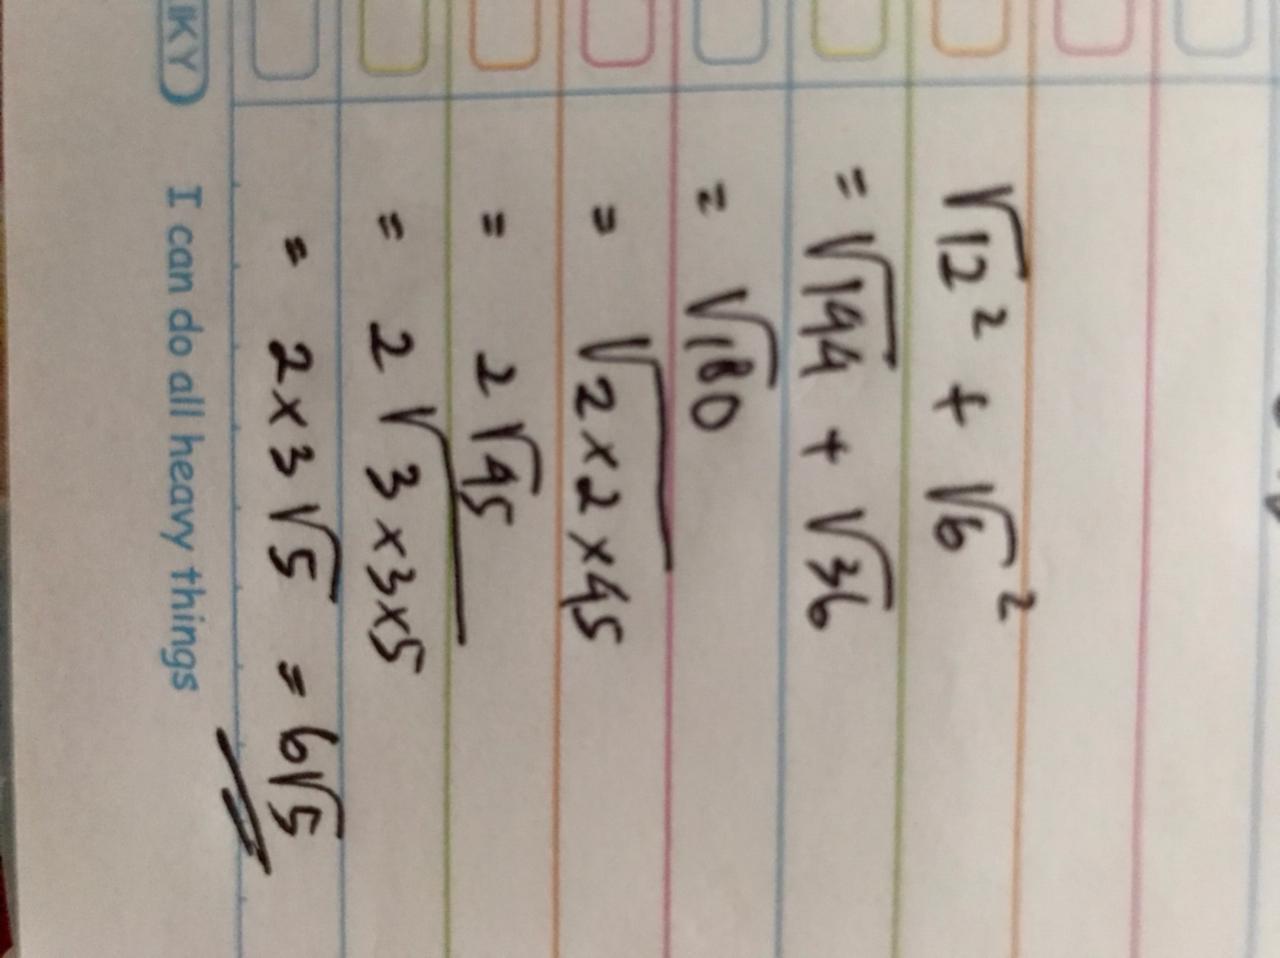 √12² + √6²
= √144 + √36
= √180
= √2×2×45
= 2√45
= 2√3×3×5
= 2×3√5 = 6√5
I can do all heavy things